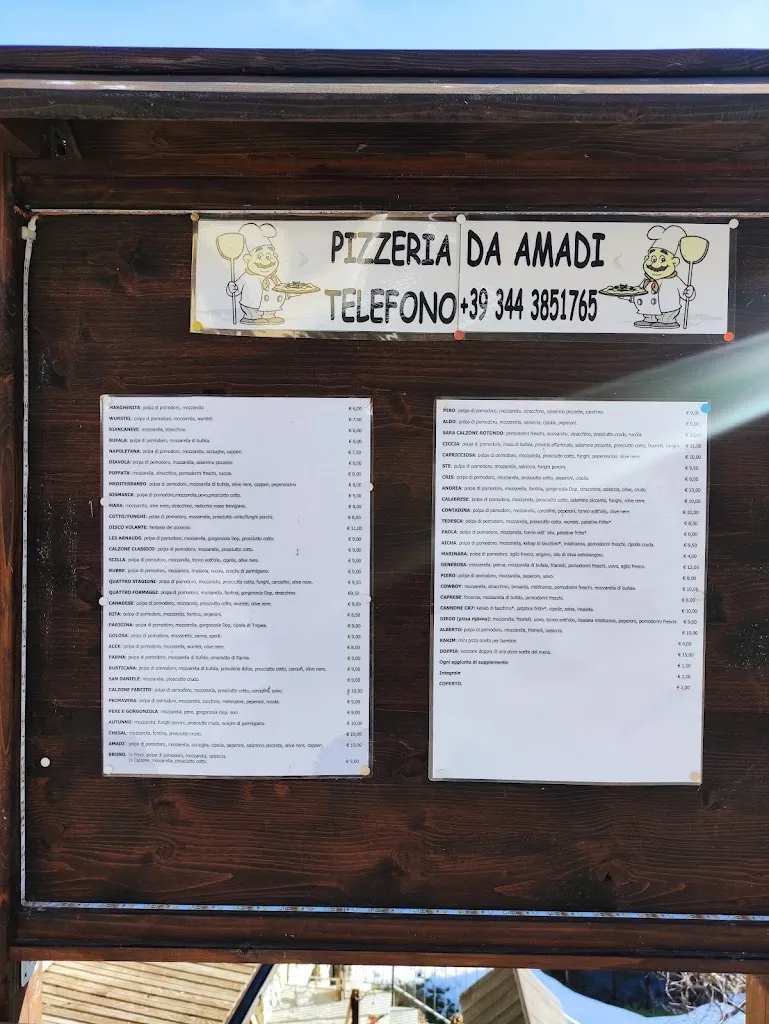 PIZZERIA DA AMADI
TELEFONO +39 344 3851765
MARGHERITA: polpa di pomodoro, mozzarella € 6,00
WURSTEL: polpa di pomodoro, mozzarella, wurstel € 7,00
BIANCANEVE: mozzarella, stracchino € 6,00
BUFALA: polpa di pomodoro, mozzarella di bufala
NAPOLETANA: polpa di pomodoro, mozzarella, acciughe, capperi € 7,50
DIAVOLA: polpa di pomodoro, mozzarella, salamino piccante € 8,00
PUFFATA: mozzarella, stracchino, pomodorini freschi, rucola. € 8,00
MEDITERRANEO: polpa di pomodoro, mozzarella di bufala, olive nere, capperi, peperoncino € 9,00
BISMARCK: polpa di pomodoro,mozzarella,uovo,prosciutto cotto. € 9,00
MARA: mozzarella, olive nere, stracchino, radicchio rosso trevigiano. € 9,00
COTTO/FUNGHI: polpa di pomodoro, mozzarella, prosciutto cotto/funghi porcini.
DISCO VOLANTE: fantasia del pizzaiolo € 11,00
LES ARNAUDS: polpa di pomodoro, mozzarella, gorgonzola Dop, prosciutto cotto. € 9,00
CALZONE CLASSICO: polpa di pomodoro, mozzarella, prosciutto cotto. € 9,00
SCILLA: polpa di pomodoro, mozzarella, tonno sott'olio, cipolla, olive nere. € 9,00
RUBRE: polpa di pomodoro, mozzarella, bresaola, rucola, scaglie di parmigiano. € 9,00
QUATTRO STAGIONI: polpa di pomodoro, mozzarella, prosciutto cotto, funghi, carciofini, olive nere. € 9,50
QUATTRO FORMAGGI: polpa di pomodoro, mozzarella, fontina, gorgonzola Dop, stracchino €9,50
CANADESE: polpa di pomodoro, mozzarella, prosciutto cotto, wurstel, olive nere € 9,00
RITA: polpa di pomodoro, mozzarella, fontina, peperoni.
PARIGINA: polpa di pomodoro, mozzarella, gorgonzola Dop, cipolla di Tropea. € 9,00
GOLOSA: polpa di pomodoro, mozzarella, panna, speck. € 9,00
ALEX: polpa di pomodoro, mozzarella, wurstel, olive nere € 8,00
PARMA: polpa di pomodoro, mozzarella di bufala, prosciutto di Parma. € 9,00
RUSTICANA: polpa di pomodoro, mozzarella di bufala, provolone dolce, prosciutto cotto, carciofi, olive nere. € 9,00
SAN DANIELE: mozzarella, prosciutto crudo. € 9,00
CALZONE FARCITO: polpa di pomodoro, mozzarella, prosciutto cotto, carciofini, uovo. € 10,00
PRIMAVERA: polpa di pomodoro, mozzarella, zucchine, melanzane, peperoni, rucola. € 9,00
PERE E GORGONZOLA: mozzarella, pere, gorgonzola Dop, noci. € 9,00
AUTUNNO: mozzarella, funghi porcini, prosciutto crudo, scaglie di parmigiano. € 10,00
CHESAL: mozzarella, fontina, prosciutto crudo. € 10,00
AMADI': polpa di pomodoro, mozzarella, acciughe, cipolla, peperoni, salamino piccante, olive nere, capperi. € 10,00
BRUNO: ½ Pizza, polpa di pomodoro, mozzarella, salsiccia
½ Calzone, mozzarella, prosciutto cotto. € 9,00
PIRO: polpa di pomodoro, mozzarella, stracchino, salamino piccante, zucchine. € 9,00
ALDO: polpa di pomodoro, mozzarella, salsiccia, cipolla, peperoni. € 9,00
SARA CALZONE ROTONDO: pomodorini freschi, mozzarella, stracchino, prosciutto crudo, rucola
CICCIA: polpa di pomodoro, mozz.di bufala, provola affumicata, salamino piccante, prosciutto cotto, friarielli, funghi. € 11,00
CAPRICCIOSA: polpa di pomodoro, mozzarella, prosciutto cotto, funghi, peperoncino, olive nere € 10,00
STE: polpa di pomodoro, mozzarella, salsiccia, funghi porcini. € 9,50
CRIS: polpa di pomodoro, mozzarella, prosciutto cotto, peperoni, cipolla. € 9,00
ANDREA: polpa di pomodoro, mozzarella, fontina, gorgonzola Dop, stracchino, salsiccia, olive, crudo. € 13,00
CALABRESE: polpa di pomodoro, mozzarella, prosciutto cotto, salamino piccante, funghi, olive nere. € 10,00
CONTADINA: polpa di pomodoro, mozzarella, carciofini, peperoni, tonno sott'olio, olive nere € 10,00
TEDESCA: polpa di pomodoro, mozzarella, prosciutto cotto, wurstel, patatine fritte*
PAOLA: polpa di pomodoro, mozzarella, tonno sott' olio, patatine fritte* € 8,00
AICHA: polpa di pomodoro, mozzarella, kebap di tacchino*, misticanza, pomodorini freschi, cipolla cruda. € 9,50
MARINARA: polpa di pomodoro, aglio fresco, origano, olio di oliva extravergine. € 4,00
GENEROSA: mozzarella, panna, mozzarella di bufala, friarielli, pomodorini freschi, uovo, aglio fresco. € 12,00
PIERO: polpa di pomodoro, mozzarella, peperoni, uovo. € 8,00
COWBOY: mozzarella, stracchino, bresaola, misticanza, pomodorini freschi, mozzarella di bufala. € 10,00
CAPRESE: focaccia, mozzarella di bufala, pomodorini freschi. € 8,00
CANNONE CR7: kebab di tacchino*, patatine fritte*, cipolla, salse, insalata. € 10,00
DIEGO (pizza ripiena): mozzarella, friarielli, uovo, tonno sott'olio, insalata misticanza, peperoni, pomodorini freschi € 9,00
ALBERTO: polpa di pomodoro, mozzarella, friarielli, salsiccia. € 10,00
KARIM: mini pizza scelta per bambini € 4,00
DOPPIA: versione doppia di una pizza scelta del menù. € 15,00
Ogni aggiunta di supplemento € 1,50
Integrale € 1,00
COPERTO. € 2,00